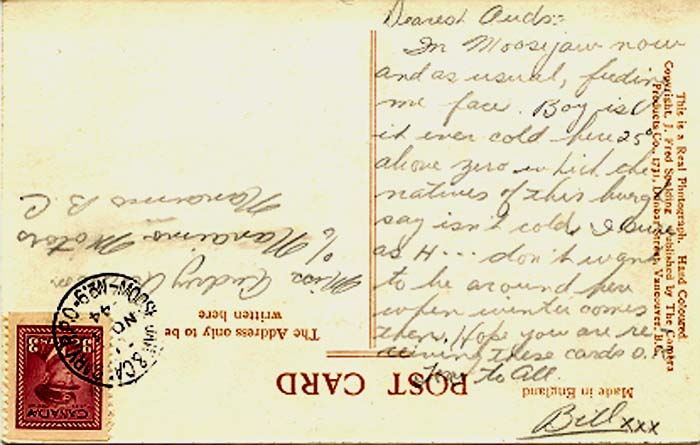 Dearest Auds:-
In Moosejaw now
and as usual, feeding
me face. Boy is
it ever cold here 25°
above zero which the
natives of this burg
say isn't cold, I sure
as H... don't want
to be around here
when winter comes
then. Hope you are re
ceiving these cards O.K.
Love to All.
Bill xxx
POST CARD
Made in England
The Address only to be
written here
Miss Audrey
c/o Nanaimo Motors
Nanaimo B.C.
This is a Real Photograph. Hand Coloured
Copyright, J. Fred Spalding. Published by The Camera
Products Co., 1731, Dunbar Street, Vancouver, B.C.
CANADA
3 3
MOOSE JAW & CALGARY R.P.O.
NO
44